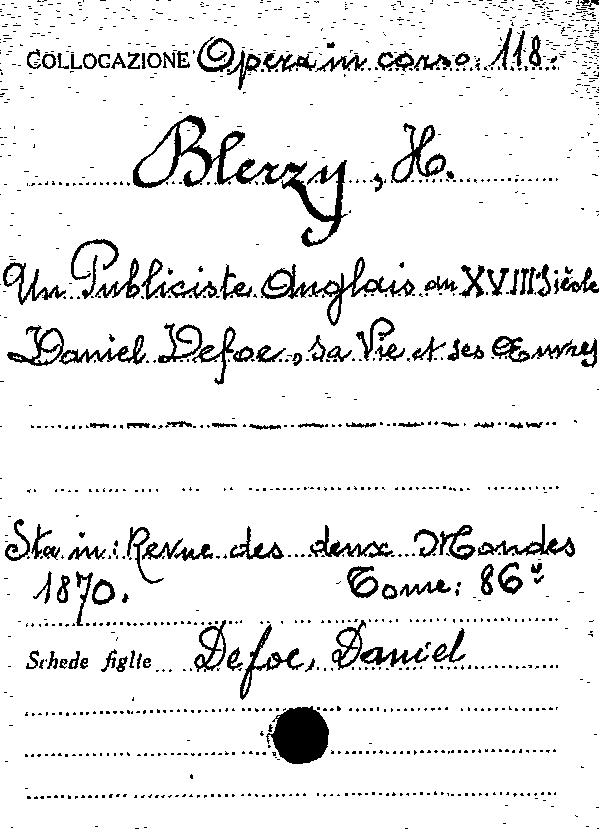 COLLOCAZIONE Opera in corso. 118.
Blerzy, H.
Un Publiciste Anglais au XVIII Siècle
Daniel Defoe, sa Vie et ses Œuvres
Sta in: Revue des deux Mondes
1870. Tome: 86º
Schede figlie Defoe, Daniel